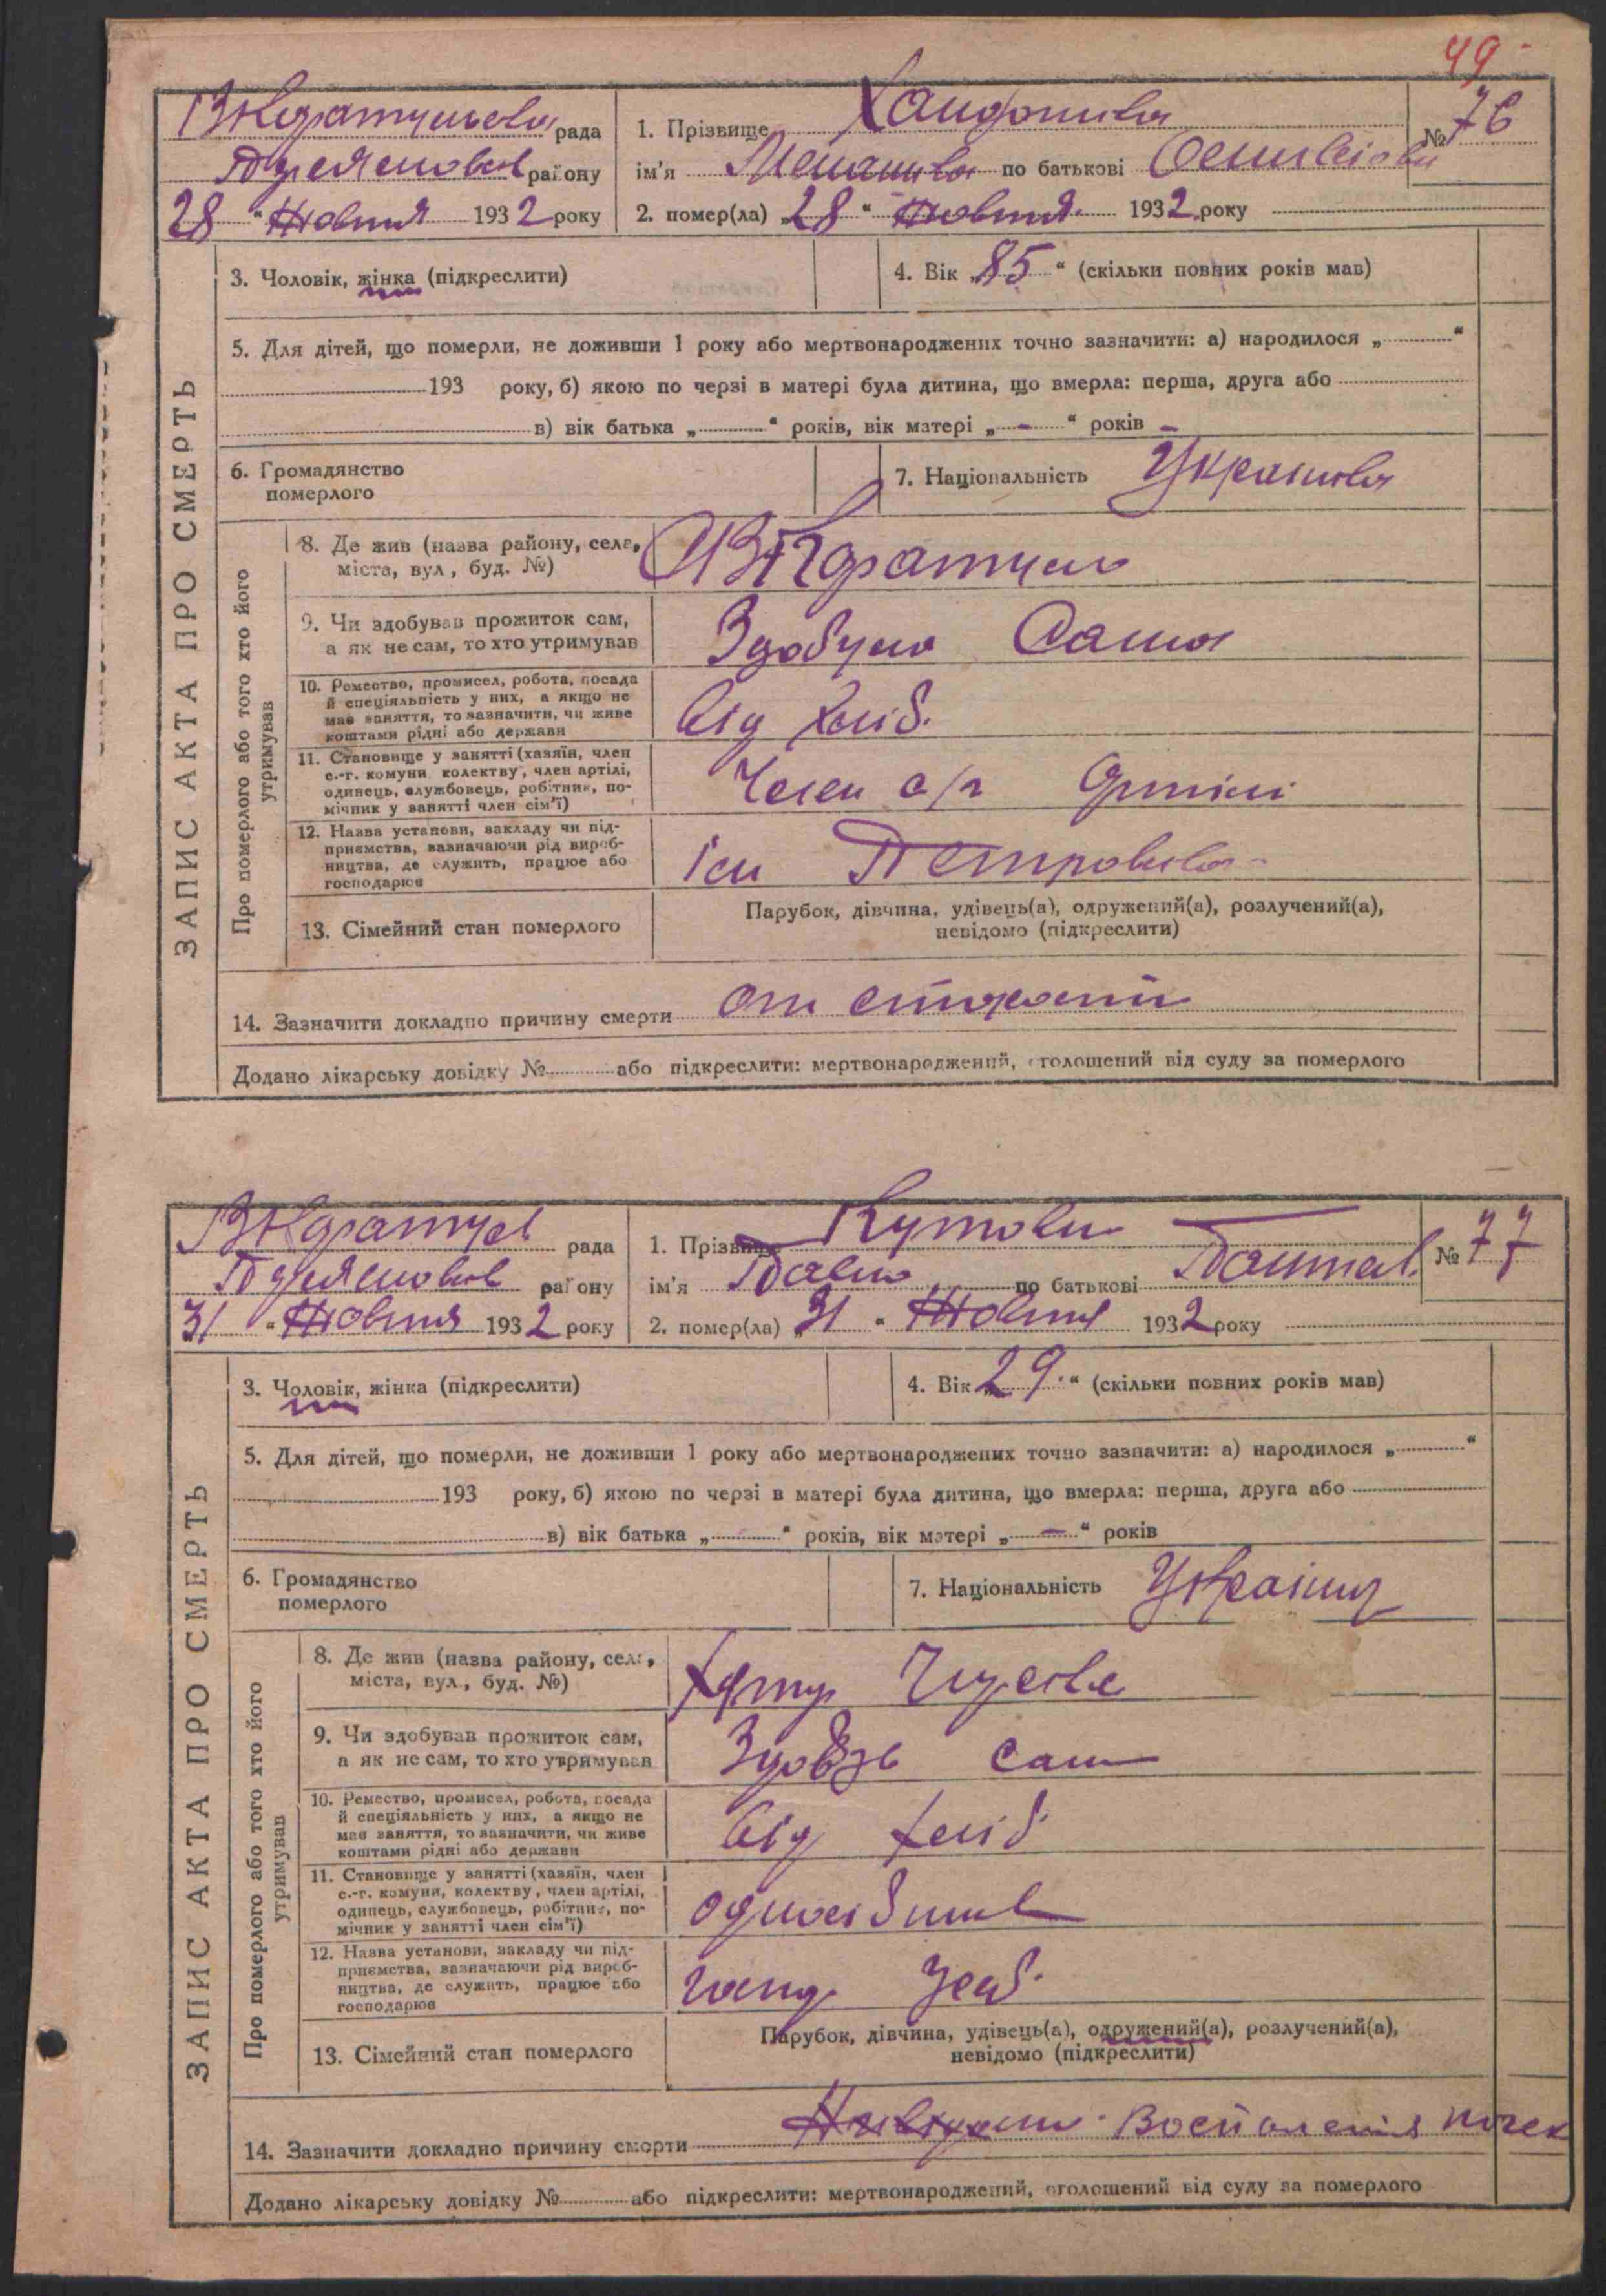 49
рада
району
28 " Жовтня 1932 року
1. Прізвище
ім'я по батькові
2. помер(ла) „28" Жовтня 1932 року
№ 76
ЗАПИС АКТА ПРО СМЕРТЬ
3. Чоловік, жінка (підкреслити)
4. Вік „85" (скільки повних років мав)
5. Для дітей, що померли, не доживши 1 року або мертвонароджених точно зазначити: а) народилося „ "
193 року, б) якою по черзі в матері була дитина, що вмерла: перша, друга або
в) вік батька „ " років, вік матері „ - " років
6. Громадянство
померлого
7. Національність Українка
Про померлого або того хто його
утримував
8. Де жив (назва району, села,
міста, вул, буд. №)
9. Чи здобував прожиток сам,
а як не сам, то хто утримував
Здобула Сама
10. Ремество, промисел, робота, посада
й спеціяльність у них, а якщо не
має заняття, то зазначити, чи живе
коштами рідні або держави
від хліб.
11. Становище у занятті (хазяїн, член
с.-г. комуни, колектву, член артілі,
одинець, службовець, робітник, по-
мічник у занятті член сім'ї)
Член с/г Артілі
12. Назва установи, закладу чи під-
приємства, зазначаючи рід вироб-
ництва, де служить, працює або
господарює
ім Петровська
13. Сімейний стан померлого
Парубок, дівчина, удівець(а), одружений(а), розлучений(а),
невідомо (підкреслити)
14. Зазначити докладно причину смерти от старости
Додано лікарську довідку № або підкреслити: мертвонароджений, оголошений від суду за померлого
рада
району
31 " Жовтня 1932 року
1. Прізвище Кутови
ім'я по батькові
2. помер(ла) „31" Жовтня 1932 року
№ 77
ЗАПИС АКТА ПРО СМЕРТЬ
3. Чоловік, жінка (підкреслити)
4. Вік „29" (скільки повних років мав)
5. Для дітей, що померли, не доживши 1 року або мертвонароджених точно зазначити: а) народилося „ "
193 року, б) якою по черзі в матері була дитина, що вмерла: перша, друга або
в) вік батька „ " років, вік матері „ - " років
6. Громадянство
померлого
7. Національність
Про померлого або того хто його
утримував
8. Де жив (назва району, села,
міста, вул., буд. №)
9. Чи здобував прожиток сам,
а як не сам, то хто утримував
сам
10. Ремество, промисел, робота, посада
й спеціяльність у них, а якщо не
має заняття, то зазначити, чи живе
коштами рідні або держави
від хліб
11. Становище у занятті (хазяїн, член
с.-г. комуни, колектву, член артілі,
одинець, службовець, робітник, по-
мічник у занятті член сім'ї)
12. Назва установи, закладу чи під-
приємства, зазначаючи рід вироб-
ництва, де служить, працює або
господарює
13. Сімейний стан померлого
Парубок, дівчина, удівець(а), одружений(а), розлучений(а),
невідомо (підкреслити)
14. Зазначити докладно причину смерти Воспаления почек
Додано лікарську довідку № або підкреслити: мертвонароджений, оголошений від суду за померлого